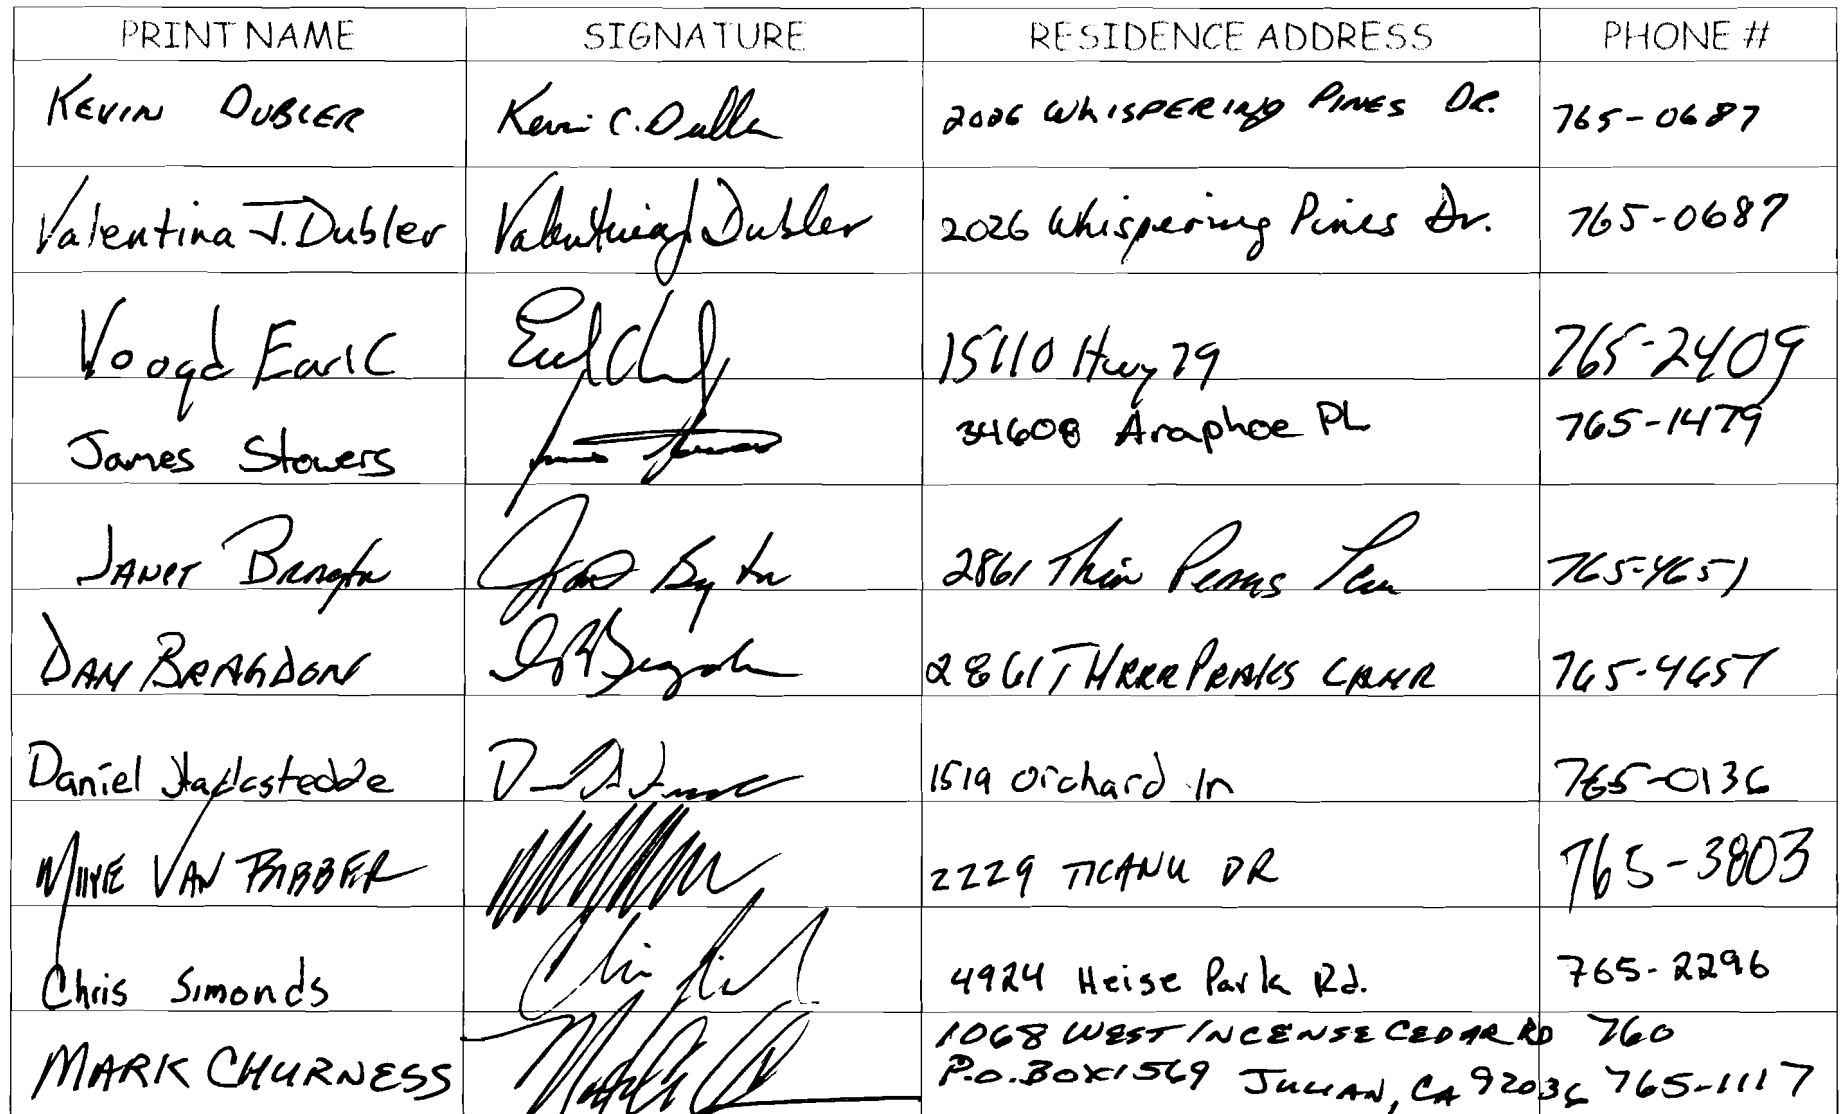 PRINT NAME SIGNATURE RESIDENCE ADDRESS PHONE #
KEVIN DUBLER Kevin C. Dubler 2026 WhISPERING PINES DR. 765-0687
Valentina J. Dubler Valentina J Dubler 2026 Whispering Pines Dr. 765-0687
Voogd Earl C 15110 Hwy 79 765-2409
James Stowers 34608 Araphoe PL 765-1479
JANET 2861 765-4651
DAN BRAGDON 2861 765-4657
Daniel 1519 Orchard ln 765-0136
MIKE VAN BIBBER 2229 DR 765-3803
Chris Simonds 4924 Heise Park Rd. 765-2296
MARK CHURNESS 1068 WEST INCENSE CEDAR RD 760
P.O. BOX 1569 JULIAN, CA 92036 765-1117